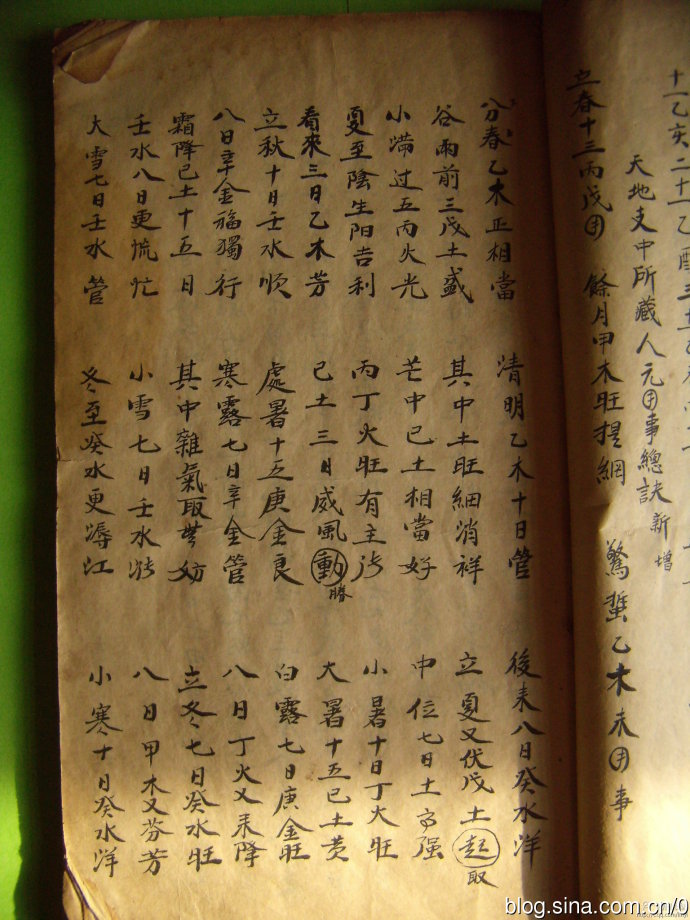 十一乙亥二十一乙酉三
天地支中所藏人元用事總訣新增
立春十三丙戊用 餘月甲木旺提綱 驚蟄乙木未用事
分春乙木正相當 清明乙木十日管 後来八日癸水洋
谷雨前三戊土盛 其中土旺細消祥 立夏又伏戊土起取
小滿过五丙火光 芒中已土相當好 中位七日土高强
夏至陰生阳吉利 丙丁火旺有主 小暑十日丁火旺
看來三日乙木芳 已土三日威風動勝 大暑十五已土黄
立秋十日壬水順 處暑十五庚金良 白露七日庚金旺
八日辛金福獨行 寒露七日辛金管 八日丁火又来降
霜降已土十五日 其中雜氣取無妨 立冬七日癸水旺
壬水八日更慌忙 小雪七日壬水 八日甲木又芬芳
大雪七日壬水管 冬至癸水更江 小寒十日癸水洋
blog.sina.com.cn/0